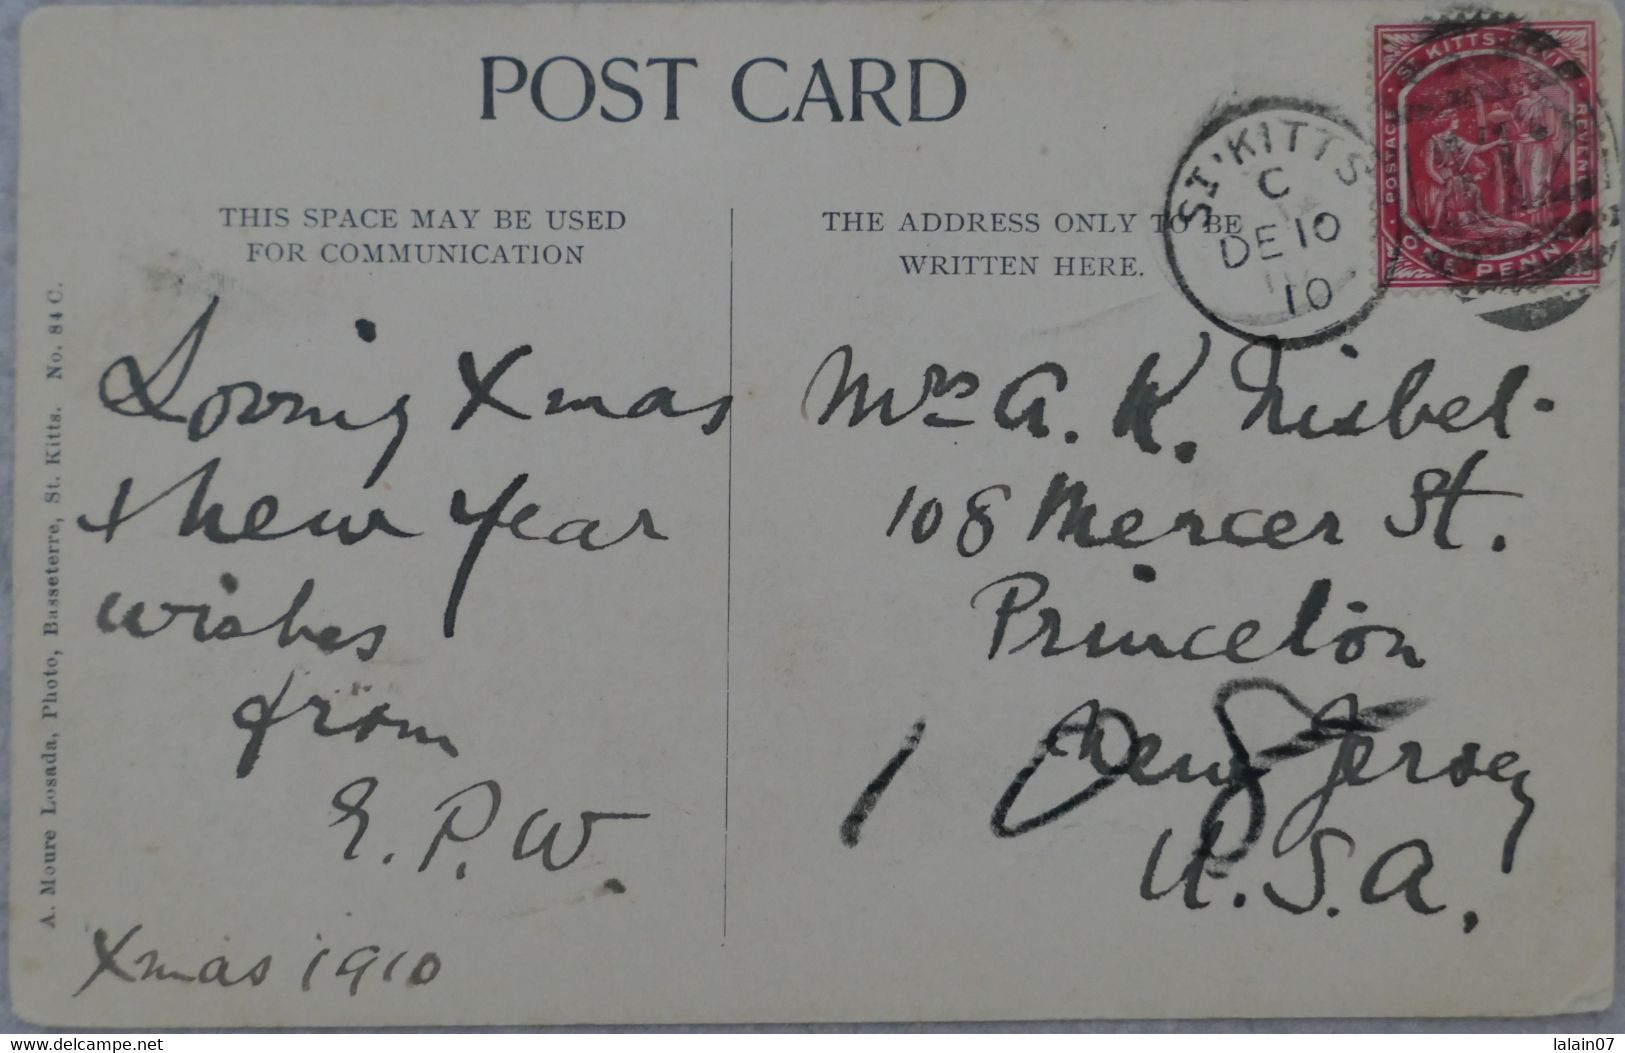 POST CARD
THIS SPACE MAY BE USED
FOR COMMUNICATION
THE ADDRESS ONLY TO BE
WRITTEN HERE.
ST KITTS-NEVIS
POSTAGE
REVENUE
ONE PENNY
ST KITTS
C
DE 10
10
Loving Xmas
+ New Year
wishes
from
E. P. W.
Xmas 1910
Mrs A. K. Nisbet.
108 Mercer St.
Princeton
New Jersey
U.S.A.
108
A. Moure Losada, Photo, Basseterre, St. Kitts. No. 84 C.
www.delcampe.net
lalain07